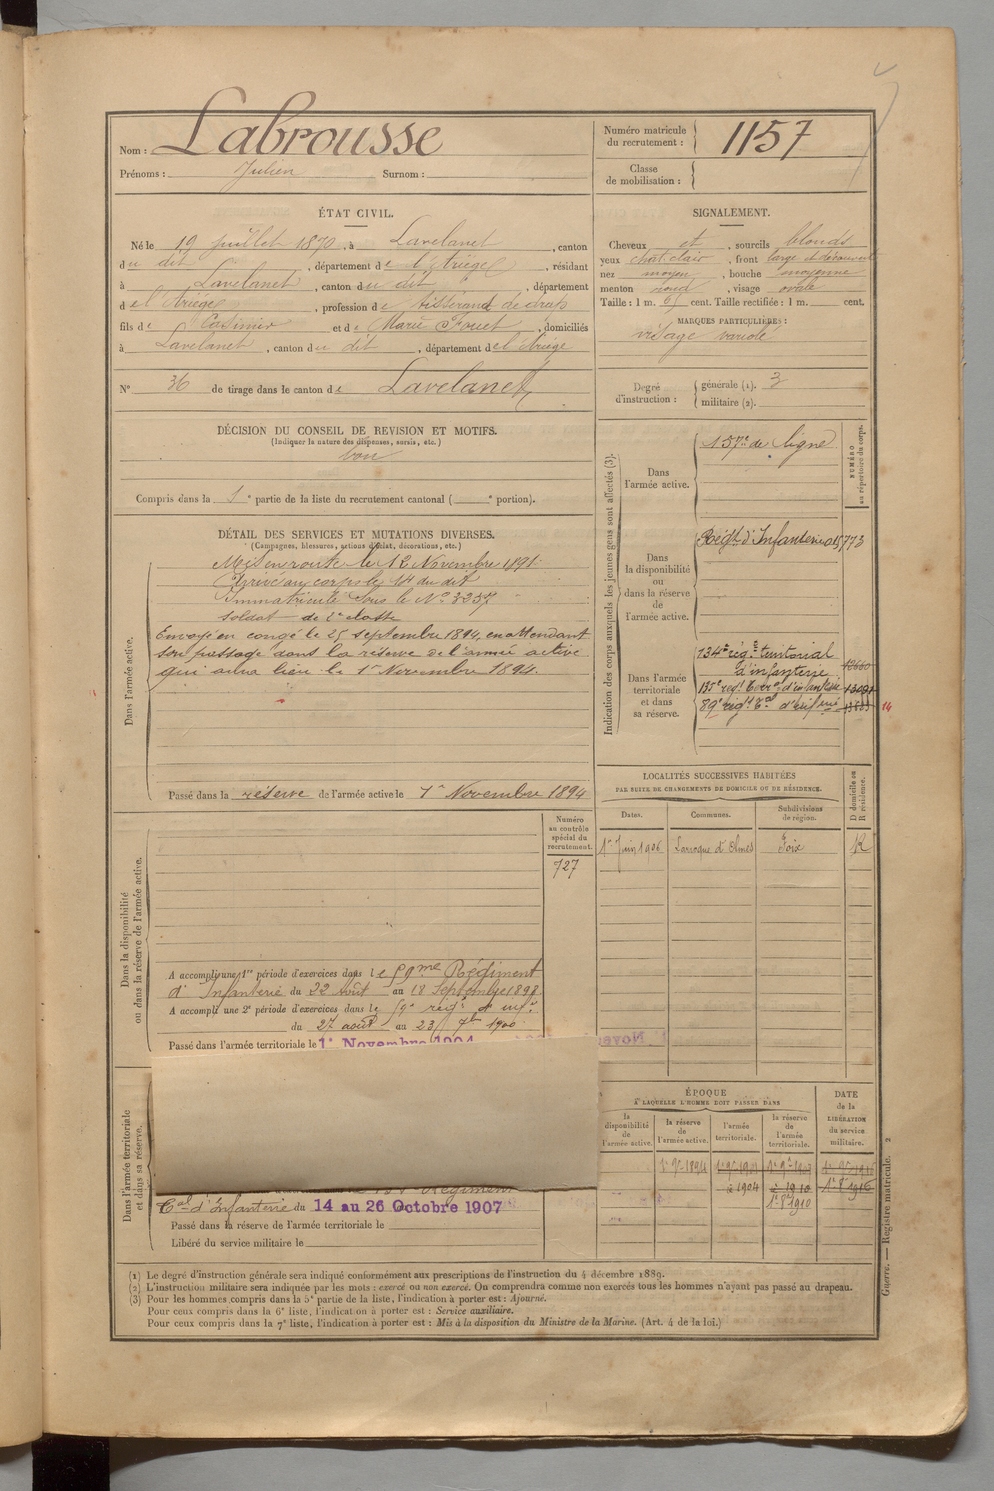 Nom : Labrousse
Prénoms : Julien Surnom :
Numéro matricule du recrutement : 1157
Classe de mobilisation :
ÉTAT CIVIL.
Né le 19 juillet 1870, à Lavelanet, canton
du dit, département de l'Ariège, résidant
à Lavelanet, canton du dit, département
de l'Ariège, profession de tisserand de draps
fils de Casimir et de Marie Fouet, domiciliés
à Lavelanet, canton du dit, département de l'Ariège
N° 36 de tirage dans le canton de Lavelanet
DÉCISION DU CONSEIL DE REVISION ET MOTIFS.
(Indiquer la nature des dispenses, sursis, etc.)
bon
Compris dans la 1e partie de la liste du recrutement cantonal ( e portion).
SIGNALEMENT.
Cheveux et, sourcils blonds
yeux chat. clair, front large et découvert
nez moyen, bouche moyenne
menton rond, visage ovale
Taille : 1 m. 65 cent. Taille rectifiée : 1 m. cent.
MARQUES PARTICULIÈRES :
visage variolé
Degré d'instruction :
générale (1). 3
militaire (2).
Indication des corps auxquels les jeunes gens sont affectés (3).
NUMÉRO au répertoire du corps.
Dans l'armée active.
157e de ligne
Dans la disponibilité ou dans la réserve de l'armée active.
Régt d'Infanterie 15773
Dans l'armée territoriale et dans sa réserve.
134e rég. territorial
d'infanterie 12660
135e régt terr. d'infanterie
89e régt Tal d'infrie
14
DÉTAIL DES SERVICES ET MUTATIONS DIVERSES.
(Campagnes, blessures, actions d'éclat, décorations, etc.)
Dans l'armée active.
Mis en route le 12 Novembre 1891.
Arrivé au corps le 14 du dit
Immatriculé sous le N° 3257
Soldat de 2e classe
Envoyé en congé le 25 septembre 1894, en attendant
son passage dans la réserve de l'armée active
qui aura lieu le 1er Novembre 1894.
Passé dans la réserve de l'armée active le 1er Novembre 1894
LOCALITÉS SUCCESSIVES HABITÉES
PAR SUITE DE CHANGEMENTS DE DOMICILE OU DE RÉSIDENCE.
Dates. Communes. Subdivisions de région. D domicile ou R résidence.
1er Juin 1906 Laroque d'Olmes Foix R
Dans la disponibilité ou dans la réserve de l'armée active.
Numéro au contrôle spécial du recrutement.
727
A accompli une 1re période d'exercices dans le 59me Régiment
d'Infanterie du 22 Août au 18 Septembre 1898
A accompli une 2e période d'exercices dans le 59e régt d'inf.
du 27 août au 23 7bre 1900
Passé dans l'armée territoriale le 1er Novembre 1904
Dans l'armée territoriale et dans sa réserve.
Régiment
Tal d'Infanterie du 14 au 26 Octobre 1907
Passé dans la réserve de l'armée territoriale le
Libéré du service militaire le
ÉPOQUE
A LAQUELLE L'HOMME DOIT PASSER DANS
la disponibilité de l'armée active.
la réserve de l'armée active.
l'armée territoriale.
la réserve de l'armée territoriale.
DATE de la LIBÉRATION du service militaire.
1er 9bre 1894
1904
1910
1916
(1) Le degré d'instruction générale sera indiqué conformément aux prescriptions de l'instruction du 4 décembre 1889.
(2) L'instruction militaire sera indiquée par les mots : exercé ou non exercé. On comprendra comme non exercés tous les hommes n'ayant pas passé au drapeau.
(3) Pour les hommes compris dans la 5e partie de la liste, l'indication à porter est : Ajourné.
Pour ceux compris dans la 6e liste, l'indication à porter est : Service auxiliaire.
Pour ceux compris dans la 7e liste, l'indication à porter est : Mis à la disposition du Ministre de la Marine. (Art. 4 de la loi.)
Guerre. — Registre matricule. 2